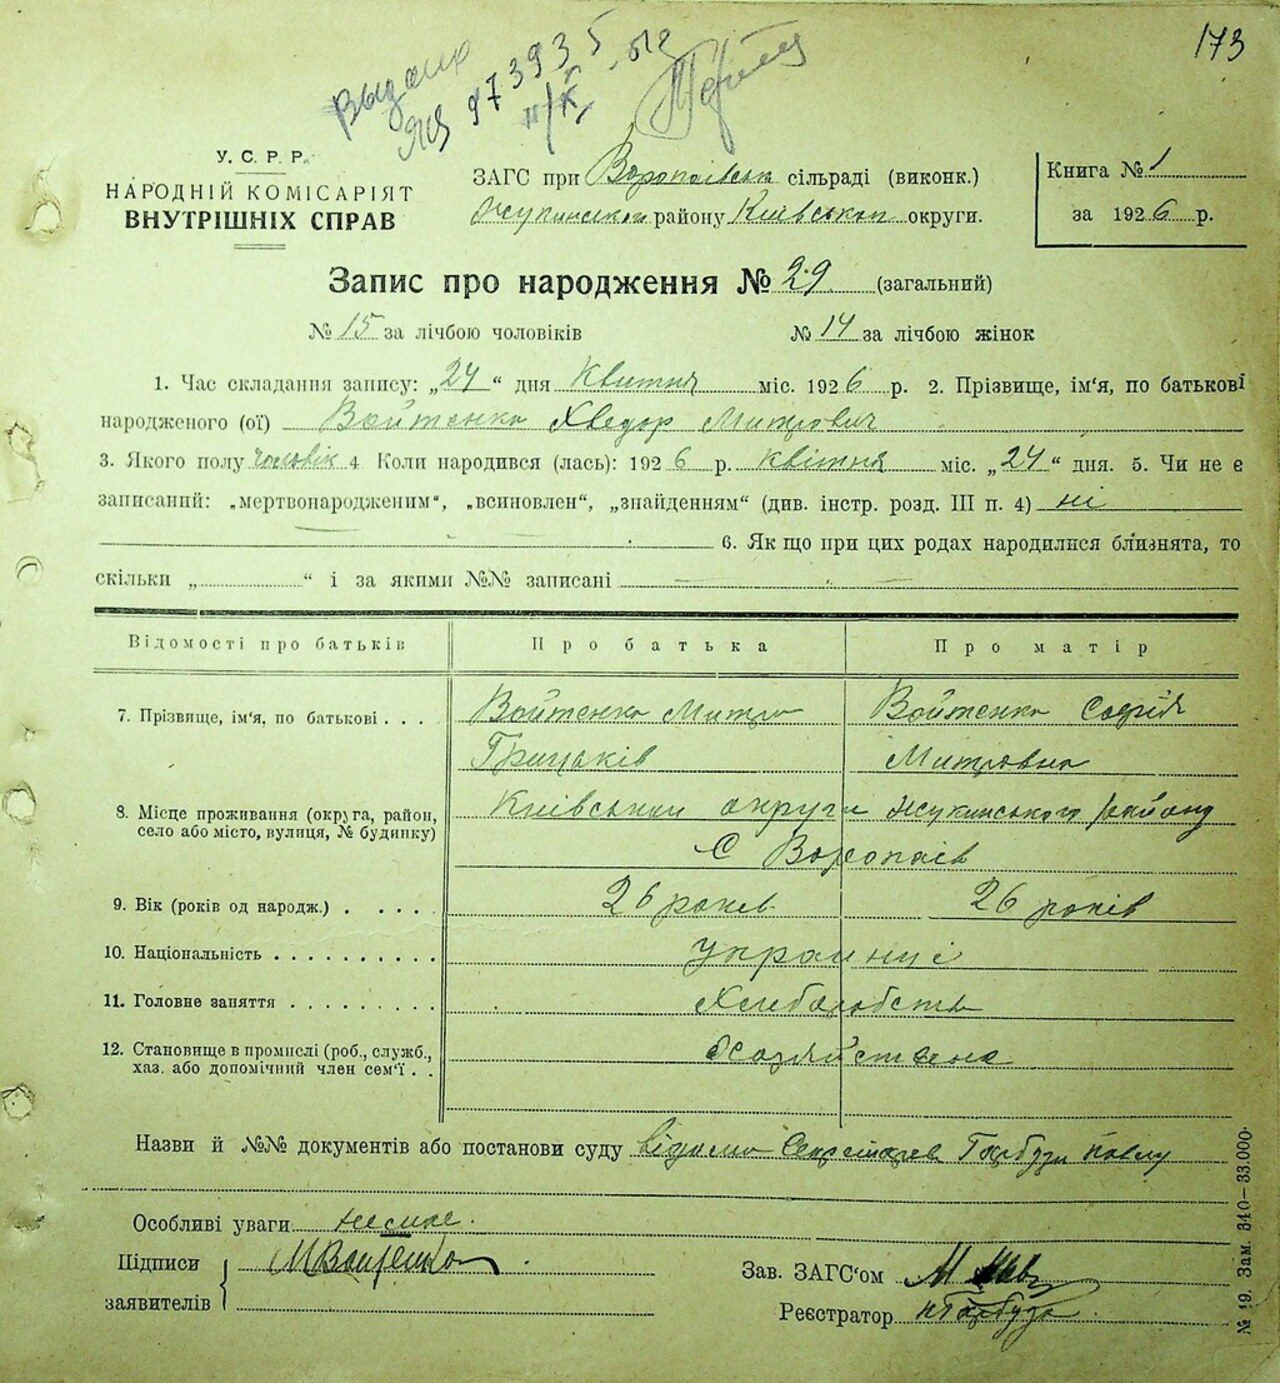 173
У. С. Р. Р.
НАРОДНІЙ КОМІСАРІЯТ
ВНУТРІШНІХ СПРАВ
ЗАГС при Воропаївська сільраді (виконк.)
Жукинського району Київської округи.
Книга № 1
за 1926 р.
Запис про народження № 29 (загальний)
№ 15 за лічбою чоловіків № 14 за лічбою жінок
1. Час складання запису: „24“ дня Квитня міс. 1926 р. 2. Прізвище, ім‘я, по батькові
народженого (ої) Войтенко Хведор Митрович
3. Якого полу Чоловік 4 Коли народився (лась): 1926 р. Квітня міс. „24“ дня. 5. Чи не є
записаний: „мертвонародженим“, „всиновлен“, „знайденням“ (див. інстр. розд. III п. 4) ні
6. Як що при цих родах народилися близнята, то
скільки „ “ і за якими №№ записані
Відомості про батьків Про батька Про матір
7. Прізвище, ім‘я, по батькові . . . Войтенко Митро Войтенко Софія
Грицьків Митровна
8. Місце проживання (округа, район, Київськои округи Жукинського району
село або місто, вулиця, № будинку) С Воропаїв
9. Вік (років од народж.) . . . . 26 років 26 років
10. Національність . . . . . . . . . . Украинці
11. Головне заняття . . . . . . . . . Хлеборобств
12. Становище в промислі (роб., служб., Хозяйствена
хаз. або допомічний член сем‘ї . .
Назви й №№ документів або постанови суду відомо Гарбузи Павлу
Особливі уваги
Підписи М Войтенко
заявителів
Зав. ЗАГС‘ом
Реєстратор П Гарбуза
№ 19. Зам. 340–33.000.